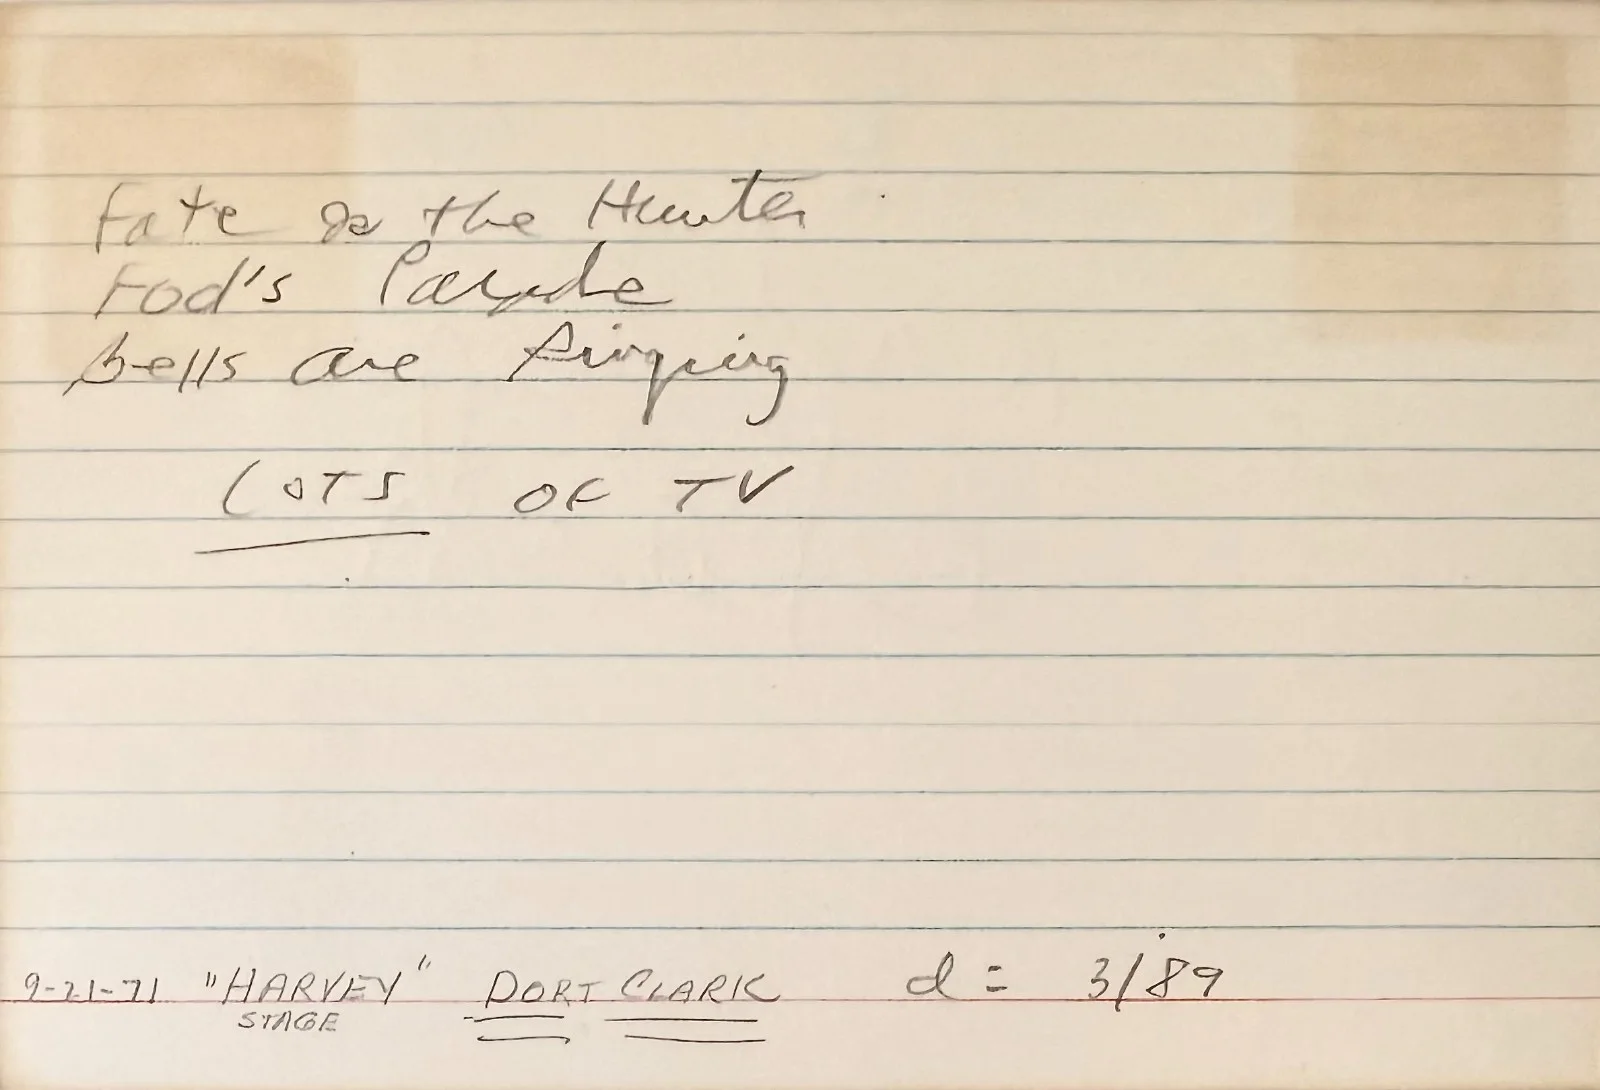 Fate is the Hunter
Fool's Parade
Bells are Ringing
LOTS OF TV
9-21-71 "HARVEY" DORT CLARK d = 3/89
STAGE